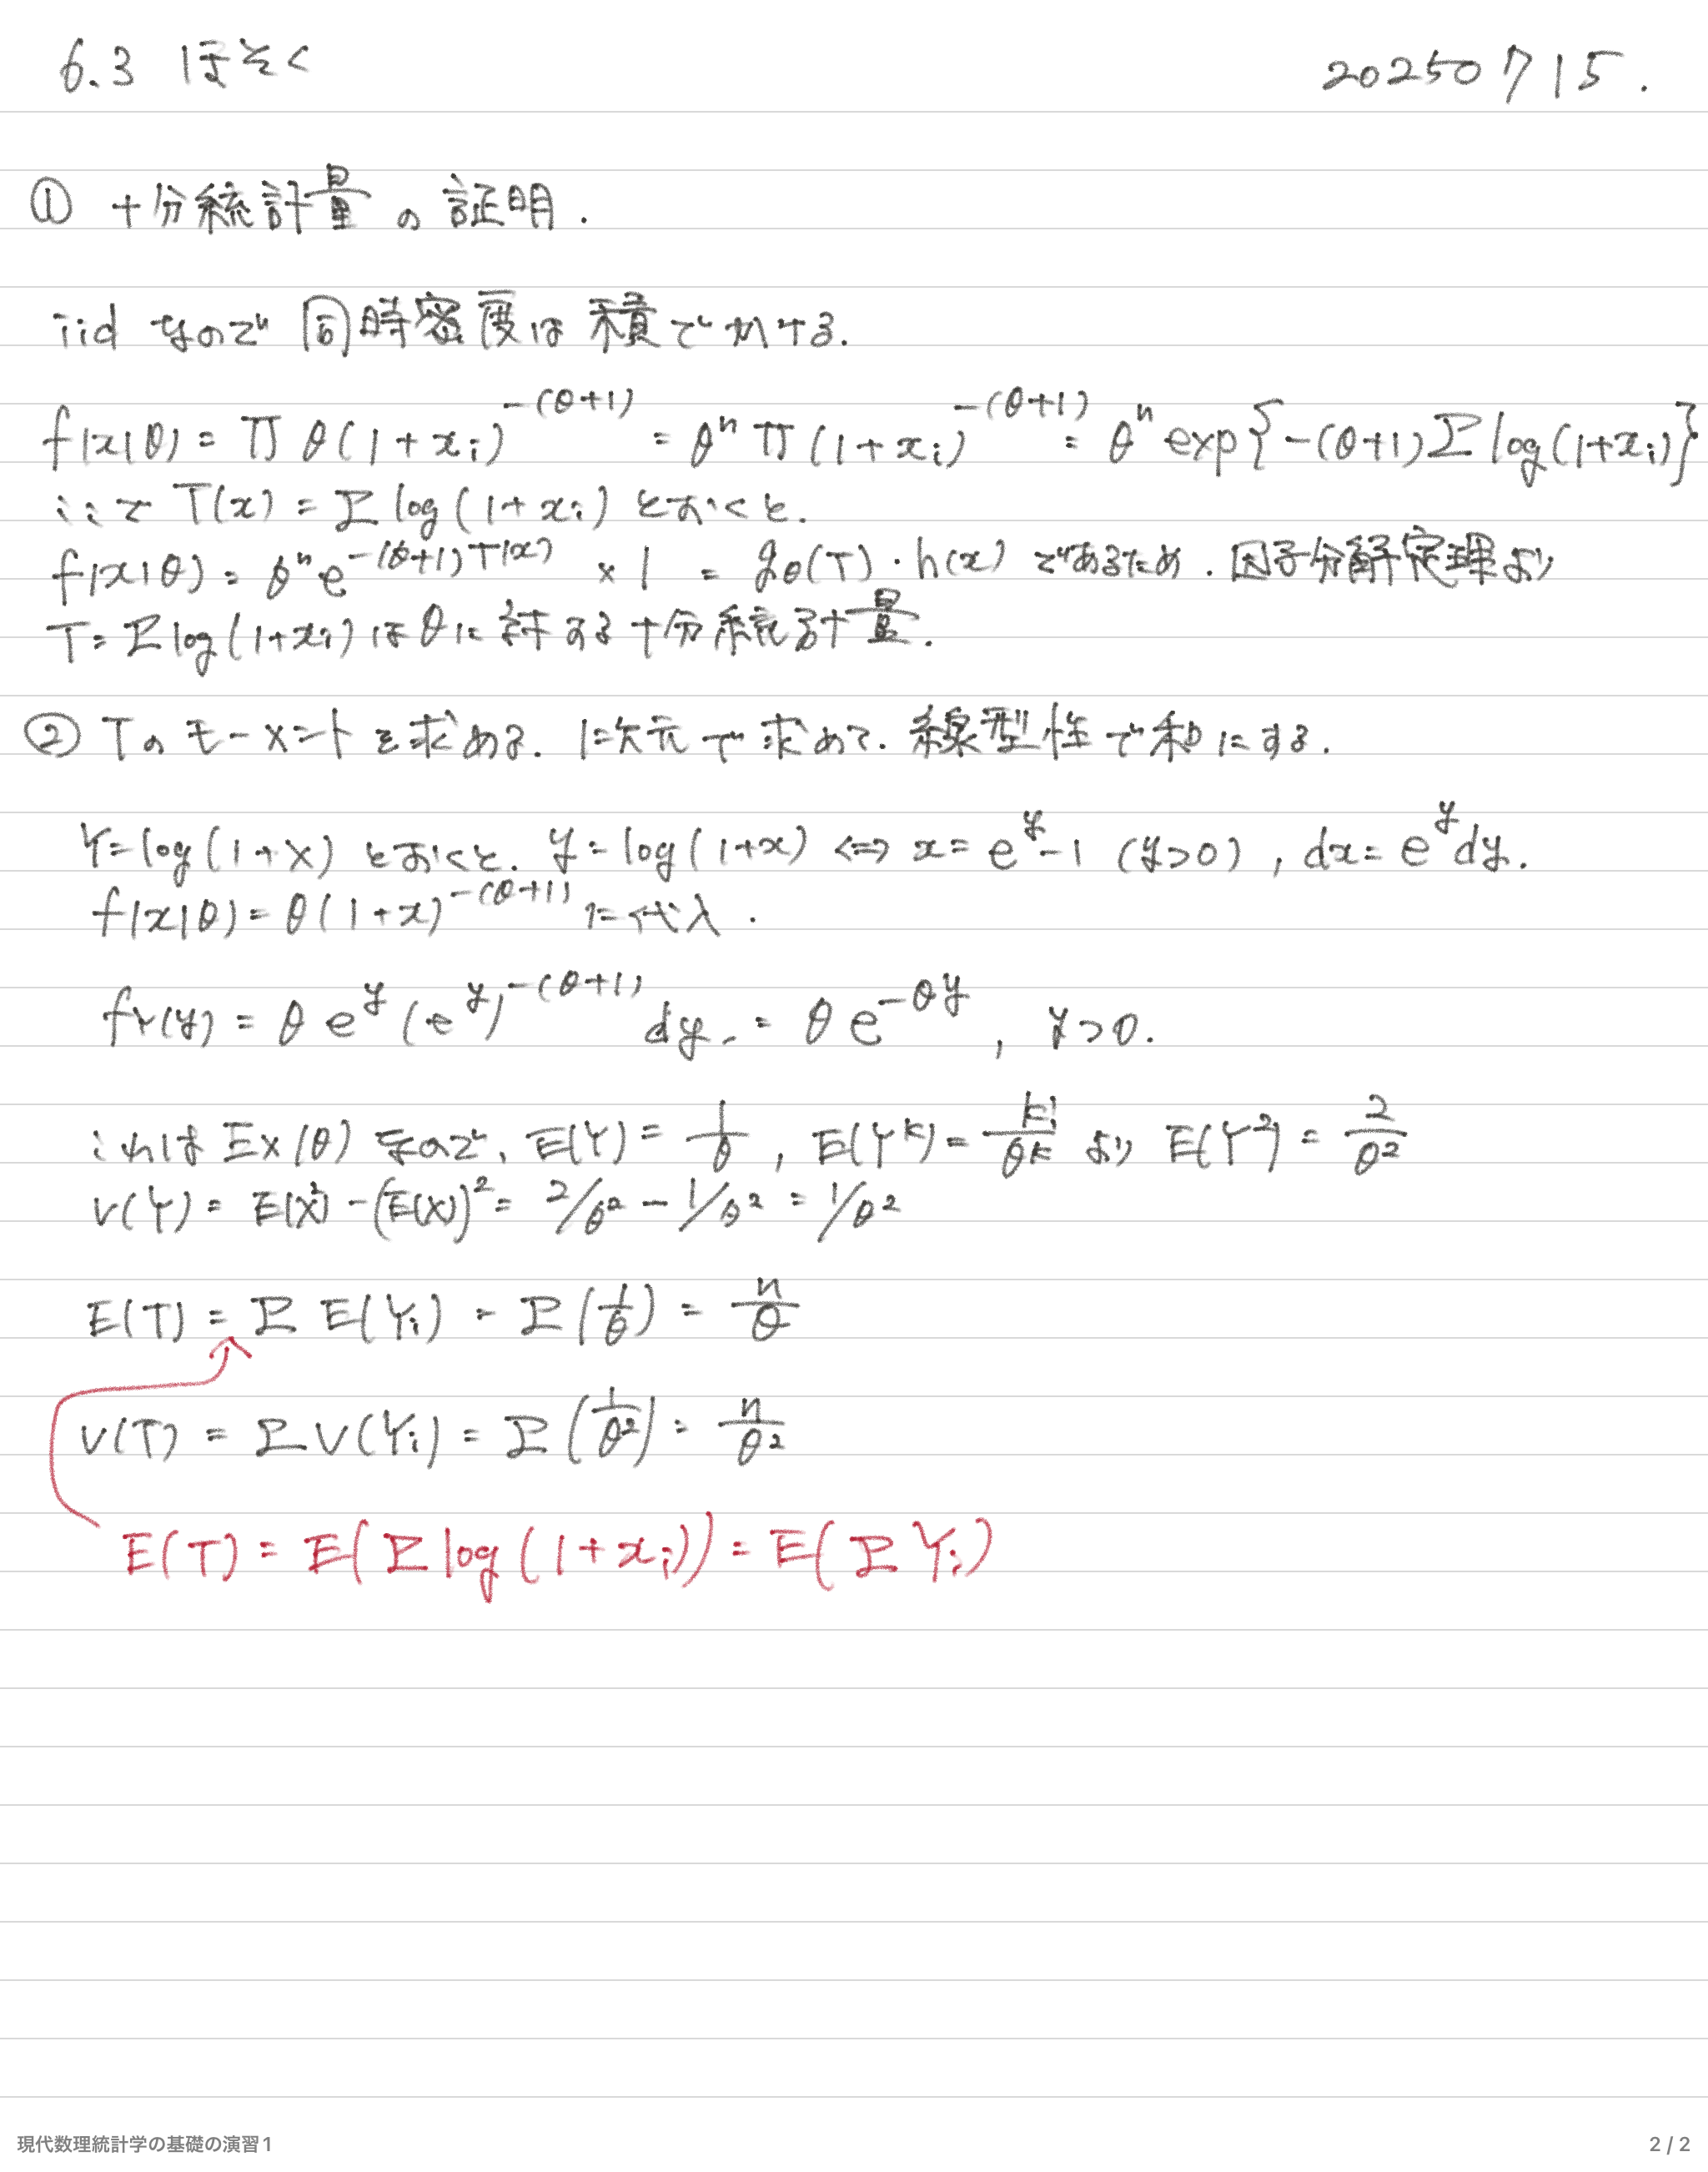 6.3 ほそく
20250715.
① 十分統計量の証明.
iid なので 同時密度は 積でかける.
f(x|θ) = Π θ(1+xi)^-(θ+1) = θ^n Π (1+xi)^-(θ+1) = θ^n exp{-(θ+1)Σ log(1+xi)}
ここで T(x) = Σ log(1+xi) とおくと.
f(x|θ) = θ^n e^-(θ+1)T(x) × 1 = gθ(T)・h(x) であるため. 因子分解定理より
T = Σ log(1+xi) は θ に対する十分統計量.
② T の モーメントを求める. 1次元で求めて. 線型性で和にする.
Y = log(1+X) とおくと. y = log(1+x) ⇔ x = e^y - 1 (y>0), dx = e^y dy.
f(x|θ) = θ(1+x)^-(θ+1) に代入.
fY(y) = θ e^y (e^y)^-(θ+1) dy = θ e^-θy, y>0.
これは Ex(θ) なので、E(Y) = 1/θ, E(Y^k) = k!/θ^k より E(Y^2) = 2/θ^2
V(Y) = E(X^2) - (E(X))^2 = 2/θ^2 - 1/θ^2 = 1/θ^2
E(T) = Σ E(Yi) = Σ (1/θ) = n/θ
V(T) = Σ V(Yi) = Σ (1/θ^2) = n/θ^2
E(T) = E(Σ log(1+xi)) = E(Σ Yi)
現代数理統計学の基礎の演習1
2 / 2